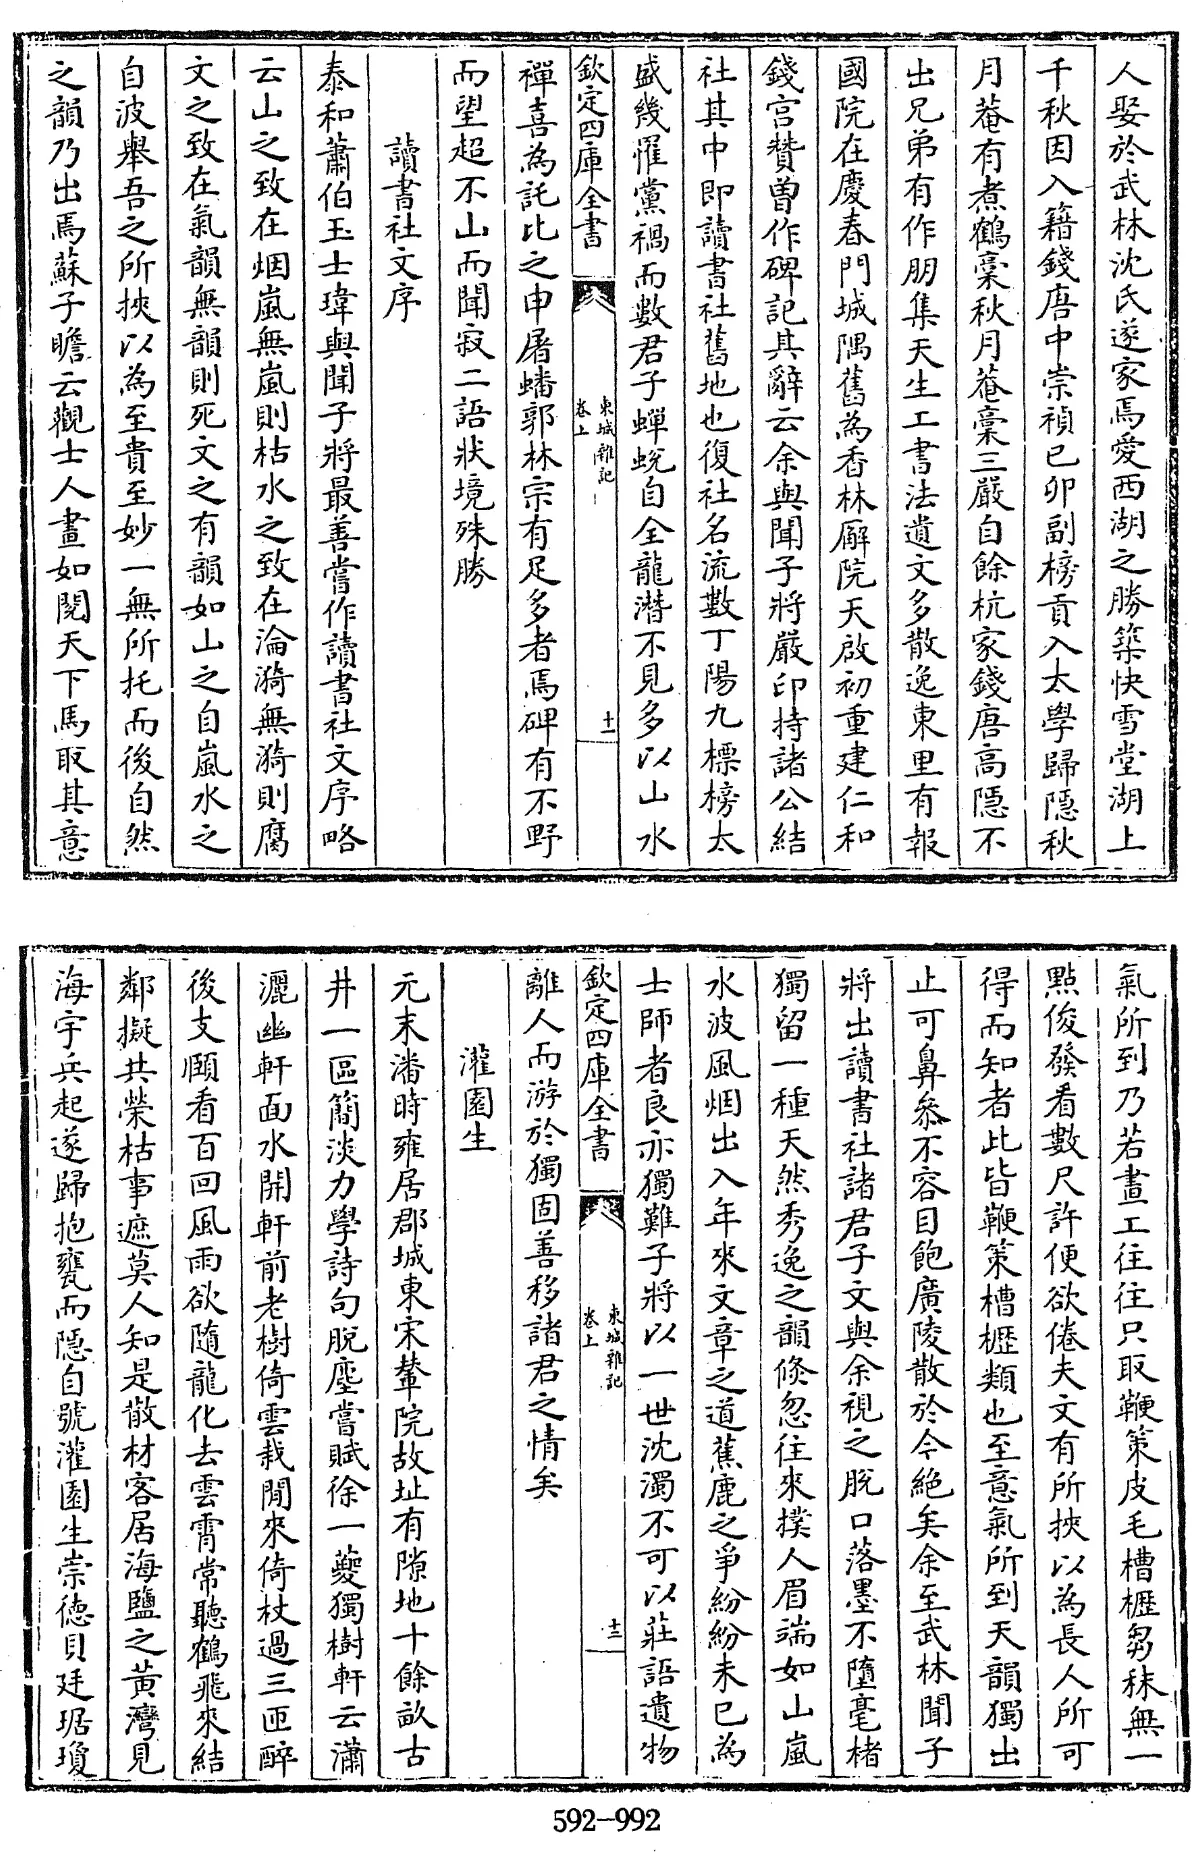 人娶於武林沈氏遂家焉愛西湖之勝築快雪堂湖上
千秋因入籍錢唐中崇禎己卯副榜貢入太學歸隱秋
月菴有煮鶴稾秋月菴稾三嚴自餘杭家錢唐高隱不
出兄弟有作朋集天生工書法遺文多散逸東里有報
國院在慶春門城隅舊為香林廨院天啟初重建仁和
錢宮贊曾作碑記其辭云余與聞子將嚴印持諸公結
社其中即讀書社舊地也復社名流數丁陽九標榜太
盛幾罹黨禍而數君子蟬蛻自全龍潛不見多以山水
欽定四庫全書 東城雜記 卷上 十一
禪喜為託比之申屠蟠郭林宗有足多者焉碑有不野
而望超不山而聞寂二語狀境殊勝
讀書社文序
泰和蕭伯玉士瑋與聞子將最善嘗作讀書社文序略
云山之致在烟嵐無嵐則枯水之致在淪漪無漪則腐
文之致在氣韻無韻則死文之有韻如山之自嵐水之
自波舉吾之所挾以為至貴至妙一無所托而後自然
之韻乃出焉蘇子瞻云觀士人畫如閱天下馬取其意
氣所到乃若畫工往往只取鞭策皮毛槽櫪芻秣無一
點俊發看數尺許便欲倦夫文有所挾以為長人所可
得而知者此皆鞭策槽櫪類也至意氣所到天韻獨出
止可鼻參不容目飽廣陵散於今絶矣余至武林聞子
將出讀書社諸君子文與余視之脫口落墨不墮毫楮
獨留一種天然秀逸之韻倏忽往來撲人眉端如山嵐
水波風烟出入年來文章之道蕉鹿之爭紛紛未已為
士師者良亦獨難子將以一世沈濁不可以莊語遺物
欽定四庫全書 東城雜記 卷上 十二
離人而游於獨固善移諸君之情矣
灌園生
元末潘時雍居郡城東宋輦院故址有隙地十餘畝古
井一區簡淡力學詩句脫塵嘗賦徐一夔獨樹軒云瀟
灑幽軒面水開軒前老樹倚雲栽閒來倚杖過三匝醉
後支頤看百回風雨欲隨龍化去雲霄常聽鶴飛來結
鄰擬共榮枯事遮莫人知是散材客居海鹽之黃灣見
海宇兵起遂歸抱甕而隱自號灌園生崇德貝廷琚瓊
592-992